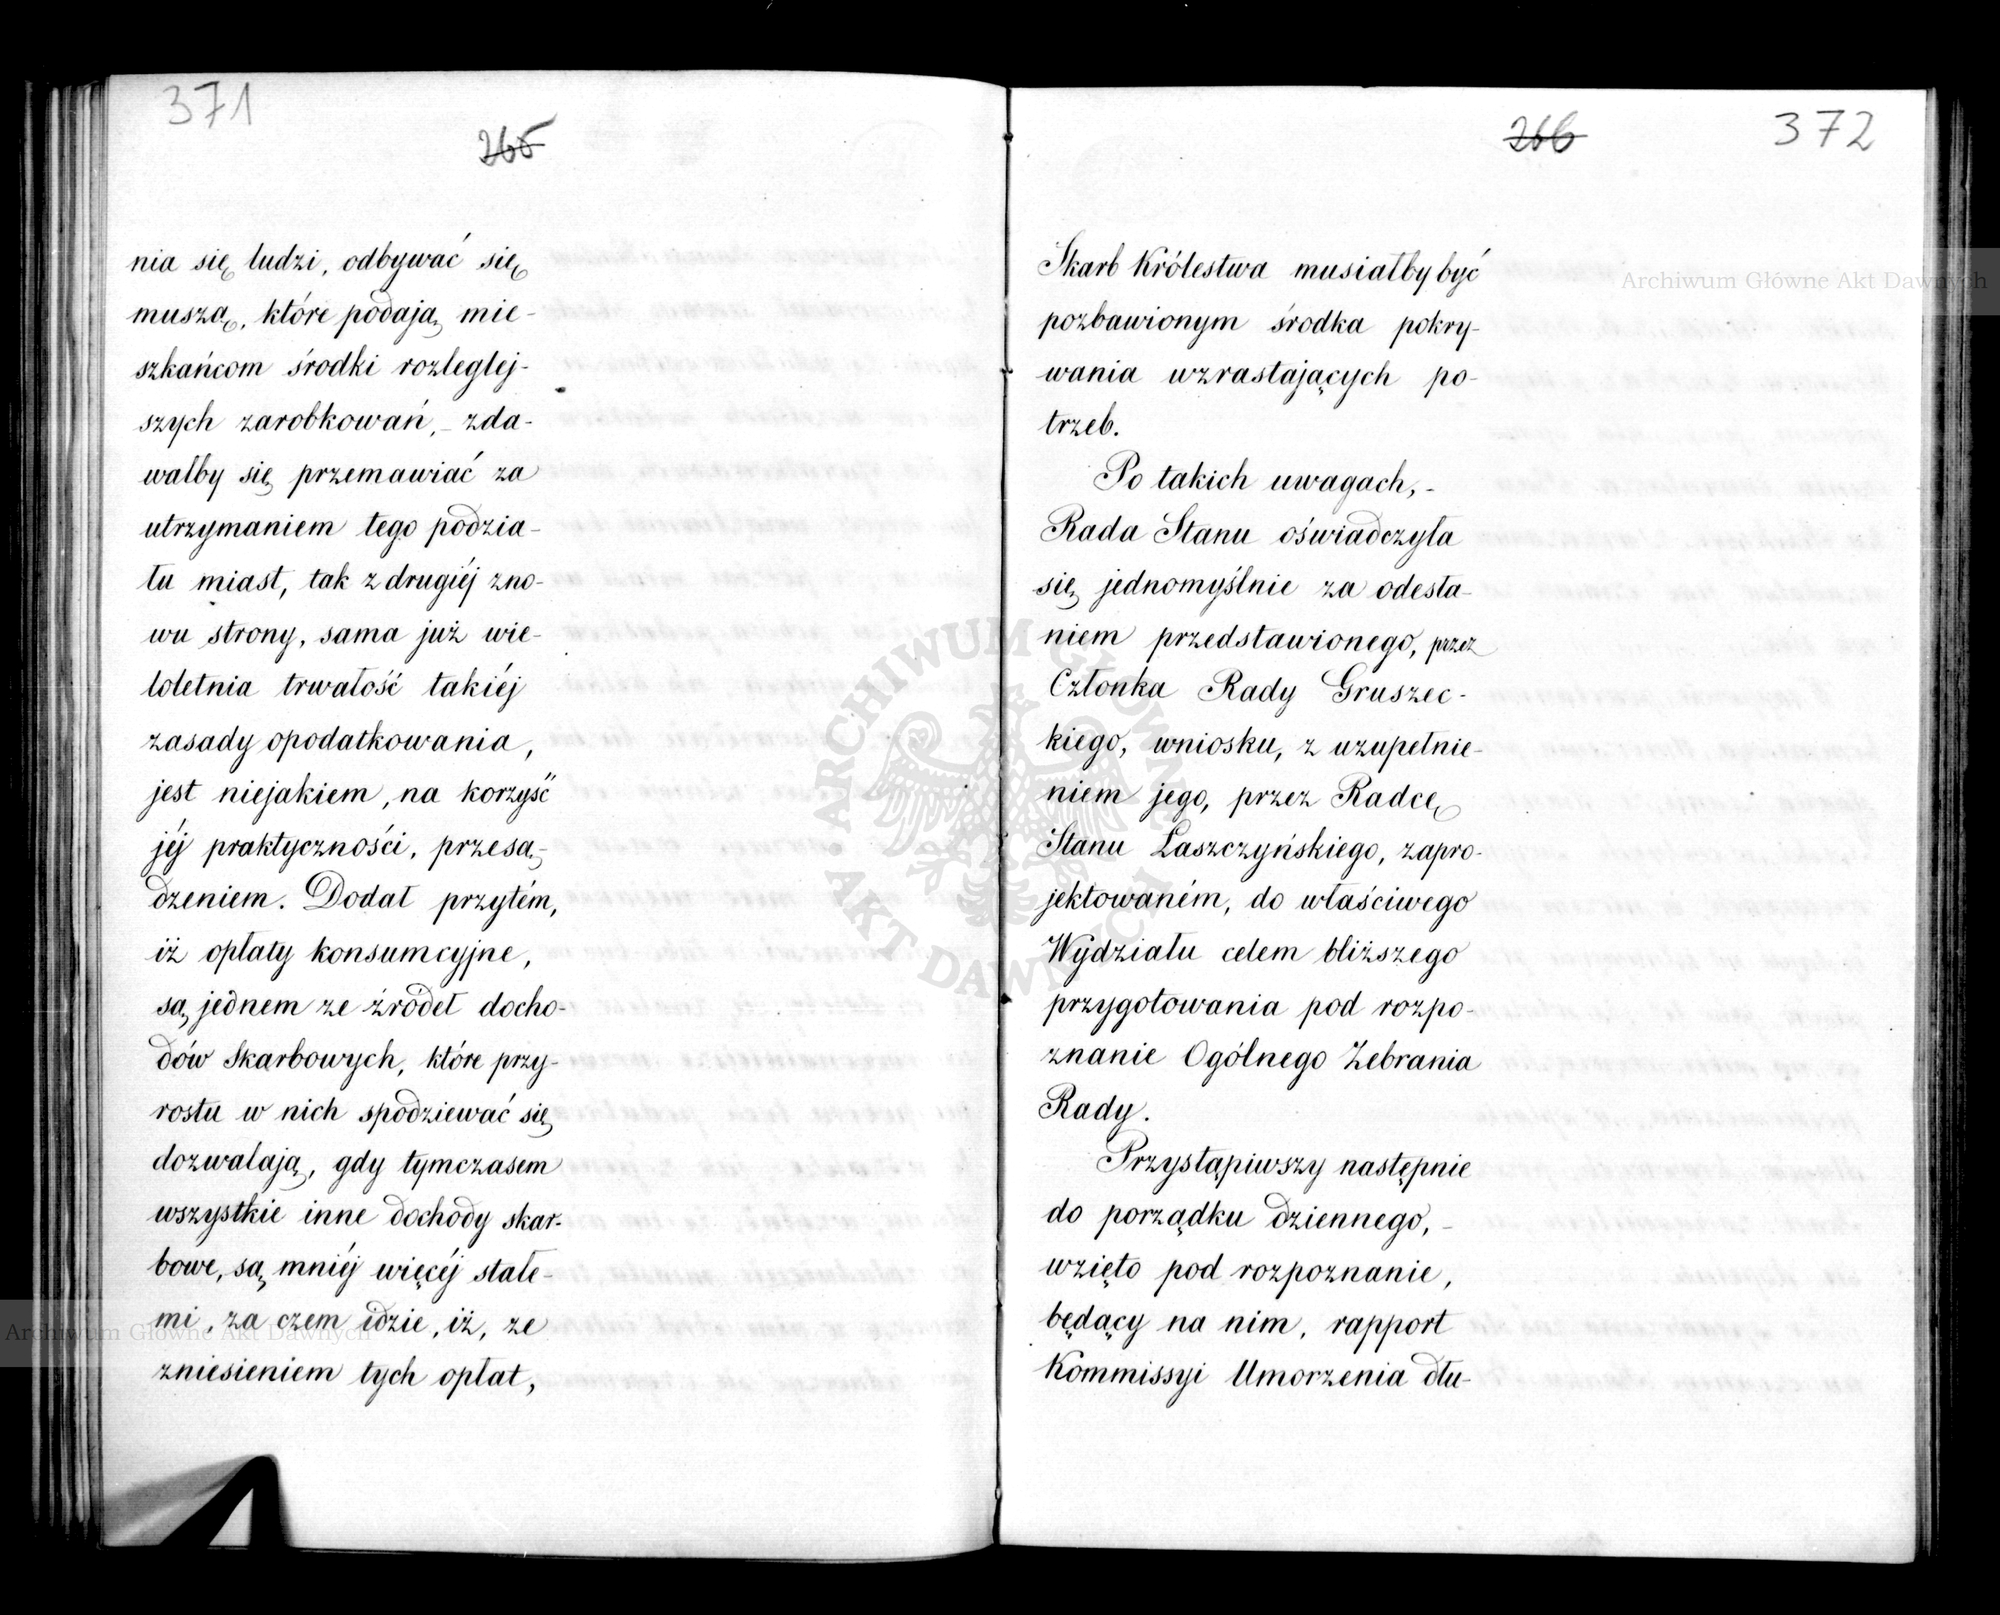 371
265
nia się ludzi, odbywać się
muszą, które podają mie-
szkańcom środki rozleglej-
szych zarobkowań, - zda-
wałby się przemawiać za
utrzymaniem tego podzia-
łu miast, tak z drugiéj zno-
wu strony, sama już wie-
loletnia trwałość takiéj
zasady opodatkowania,
jest niejakiem, na korzyść
jéj praktyczności, przesą-
dzeniem. Dodał przytém,
iż opłaty konsumcyjne,
są jednem ze źródeł docho-
dów Skarbowych, które przy-
rostu w nich spodziewać się
dozwalają, gdy tymczasem
wszystkie inne dochody skar-
bowe, są mniéj więcéj stałe-
mi, za czem idzie, iż, ze
zniesieniem tych opłat,
266
372
Skarb Królestwa musiałby być
pozbawionym środka pokry-
wania wzrastających po-
trzeb.
Po takich uwagach, -
Rada Stanu oświadczyła
się jednomyślnie za odesła-
niem przedstawionego, przez
Członka Rady Gruszec-
kiego, wniosku, z uzupełnie-
niem jego, przez Radcę
Stanu Łaszczyńskiego, zapro-
jektowaném, do właściwego
Wydziału celem bliższego
przygotowania pod rozpo-
znanie Ogólnego Zebrania
Rady.
Przystąpiwszy następnie
do porządku dziennego, -
wzięto pod rozpoznanie,
będący na nim, rapport
Kommissyi Umorzenia dłu-
Archiwum Główne Akt Dawnych
Archiwum Główne Akt Dawnych
ARCHIWUM GŁÓWNE AKT DAWNYCH